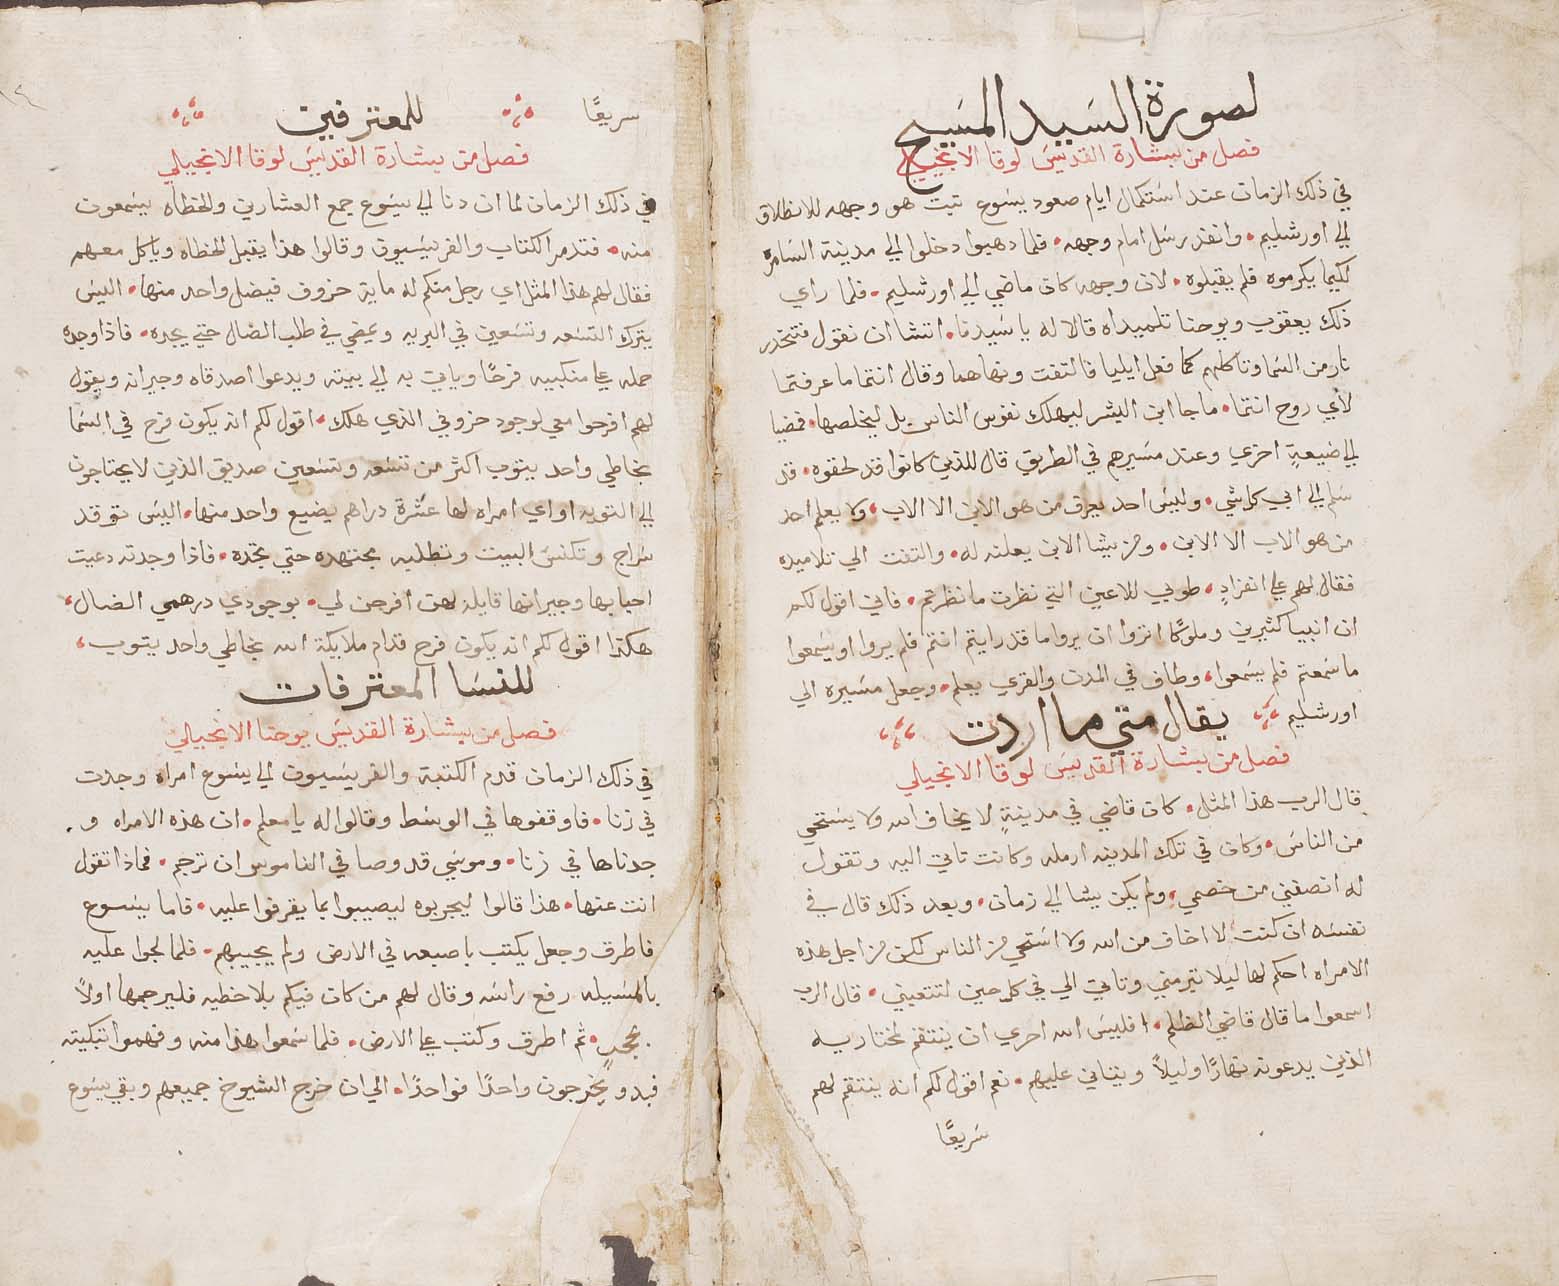 لصورة السيد المسيح
فصل من بشارة القديس لوقا الانجيلي
في ذلك الزمان عند استكمال ايام صعود يسوع ثبت هو وجهه للانطلاق
الي اورشليم • وانفذ رسل امام وجهه • فلما دهبوا دخلوا الي مدينة السامرة
لكيما يكرموه فلم يقبلوه • لان وجهه كان ماضي الي اورشليم • فلما راي
ذلك يعقوب ويوحنا تلميداه قالا له يا سيدنا • اتشا ان نقول فتنحدر
نار من السما وتاكلهم كما فعل ايليا فالتفت ونهاهما وقال انتما ما عرفتما
لاي روح انتما • ما جا ابن البشر ليهلك نفوس الناس بل ليخلصها • فمضيا
الي ضيعة اخري وعند مسيرهم في الطريق قال للذين كانوا قد لحقوه • قد
سلم الي ابي كل شي • وليس احد يعرف من هو الابن الا الاب • ولا يعلم احد
من هو الاب الا الابن • ومن يشا الابن يعلنه له • والتفت الي تلاميده
فقال لهم علي انفرادٍ • طوبي للاعين التي نظرت ما نظرتم • فاني اقول لكم
ان انبيا كثيرين وملوكًا اثروا ان يروا ما قد رايتم انتم فلم يروا او يسمعوا
ما سمعتم فلم يسمعوا • وطاف في المدن والقري يعلم • وجعل مسيره الي
اورشليم
يقال متي ما اردت
فصل من بشارة القديس لوقا الانجيلي
قال الرب هذا المثل • كان قاضي في مدينةٍ لا يخاف الله ولا يستحي
من الناس • وكان في تلك المدينه ارمله وكانت تاتي اليه وتقول
له انصفني من خصمي • ولم يكن يشا الي زمان • وبعد ذلك قال في
نفسه ان كنت لا اخاف من الله ولا استحي من الناس لكن من اجل هذه
الامراه احكم لها ليلا تبرمني وتاتي الي في كل حين لتتعبني • قال الرب
اسمعوا ما قال قاضي الظلم • افليس الله احري ان ينتقم لمختاريه
الذين يدعونه نهارًا وليلًا ويتاني عليهم • نعم اقول لكم انه ينتقم لهم
سريعًا
سريعًا
للمعترفين
فصل من بشارة القديس لوقا الانجيلي
في ذلك الزمان لما ان دنا الي يسوع جمع العشارين والخطاه يسمعون
منه • فتدمر الكتاب والفريسيون وقالوا هذا يقبل الخطاه وياكل معهم
فقال لهم هذا المثل اي رجل منكم له ماية خروف فيضل واحد منها • اليس
يترك التسعه وتسعين في البريه ويمضي في طلب الضال حتي يجده • فاذا وجده
حمله علي منكبيه فرحًا وياتي به الي بيته ويدعوا اصدقاه وجيرانه ويقول
لهم افرحوا معي لوجود خروفي الذي هلك • اقول لكم انه يكون فرح في السما
بخاطي واحد يتوب اكثر من تسعه وتسعين صديق الذين لا يحتاجون
الي التوبه او اي امراه لها عشرة دراهم يضيع واحد منها • اليس توقد
سراج وتكنس البيت وتطلبه مجتهده حتي تجده • فاذا وجدته دعيت
احبابها وجيرانها قايلة لهن افرحن لي • بوجودي درهمي الضال •
هكذا اقول لكم انه يكون فرح قدام ملايكة الله بخاطي واحد يتوب •
للنسا المعترفات
فصل من بشارة القديس يوحنا الانجيلي
في ذلك الزمان قدم الكتبة والفريسيون الي يسوع امراه وجدت
في زنا • فاوقفوها في الوسط وقالوا له يا معلم • ان هذه الامراه و
جدناها في زنا • وموسي قد وصا في الناموس ان ترجم • فماذا تقول
انت عنها • هذا قالوا ليجربوه ليصيبوا بما يقرفوا عليه • فاما يسوع
فاطرق وجعل يكتب باصبعه في الارض ولم يجيبهم • فلما لجوا عليه
بالمسيله رفع راسه وقال لهم من كان فيكم بلا خطيه فليرجمها اولًا
بحجرٍ • ثم اطرق وكتب علي الارض • فلما سمعوا هذا منه وفهموا تبكيته
فبدو يخرجون واحدًا فواحدًا • الي ان خرج الشيوخ جميعهم وبقي يسوع